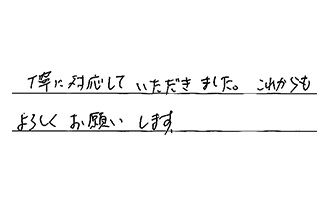 丁寧に対応していただきました。これからも
よろしくお願いします